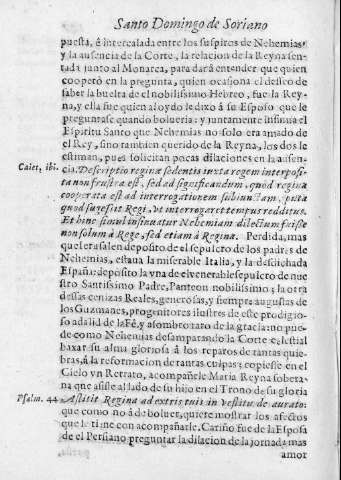 Santo Domingo de Soriano
puesta, ô intercalada entre los suspiros de Nehemias
y la ausencia de la Corte, la relacion de la Reyna sen-
tada junto al Monarca, para dar à entender que quien
cooperó en la pregunta, quien ocasiona el desseo de
saber la buelta de el nobilissimo Hebreo, fue la Rey-
na, y ella fue quien al oydo le dixo â su Esposo que le
preguntase quando bolueria: y juntamente insinua el
Espiritu Santo que Nehemias no solo era amado de
el Rey, sino tambien querido de la Reyna, los dos le
estiman, pues solicitan pocas dilaciones en la ausen-
Caiet, ibi. cia. Descriptio reginæ sedentis iuxta regem interposi-
ta non frustra est, sed ad significandum, quod regina
cooperata est ad interrogationem subiunctam, puta
quod sugessit Regi, ut interrogaret tempus redditus.
Et hinc simul insinuatur Nehemiam dilectum fuisse
non solum à Rege, sed etiam à Regina. Perdida, mas
que Ierusalen deposito de el sepulcro de los padres de
Nehemias, estaua la miserable Italia, y la desdichada
España: deposito la vna de el venerable sepulcro de nue
stro Santissimo Padre, Panteon nobilissimo; la otra
dessas cenizas Reales, generosas, y siempre augustas de
los Guzmanes, progenitores ilustres de este prodigio-
so adalid de la Fé, y asombro raro de la gracia: no pue-
de como Nehemias desamparando la Corte celestial
baxar su alma gloriosa â los reparos de tantas quie-
bras, â la reformacion de tantas culpas; copiese en el
Cielo vn Retrato, acompañele Maria Reyna sobera-
na que asiste al lado de su hijo en el Trono de su gloria
Psalm. 44. Astitit Regina ad extris tuis in vestitu de aurato:
que como no â de boluer, quiere mostrar los afectos
que le tiene con acompañarle. Cariño fue de la Esposa
de el Persiano preguntar la dilacion de la jornada mas
amor